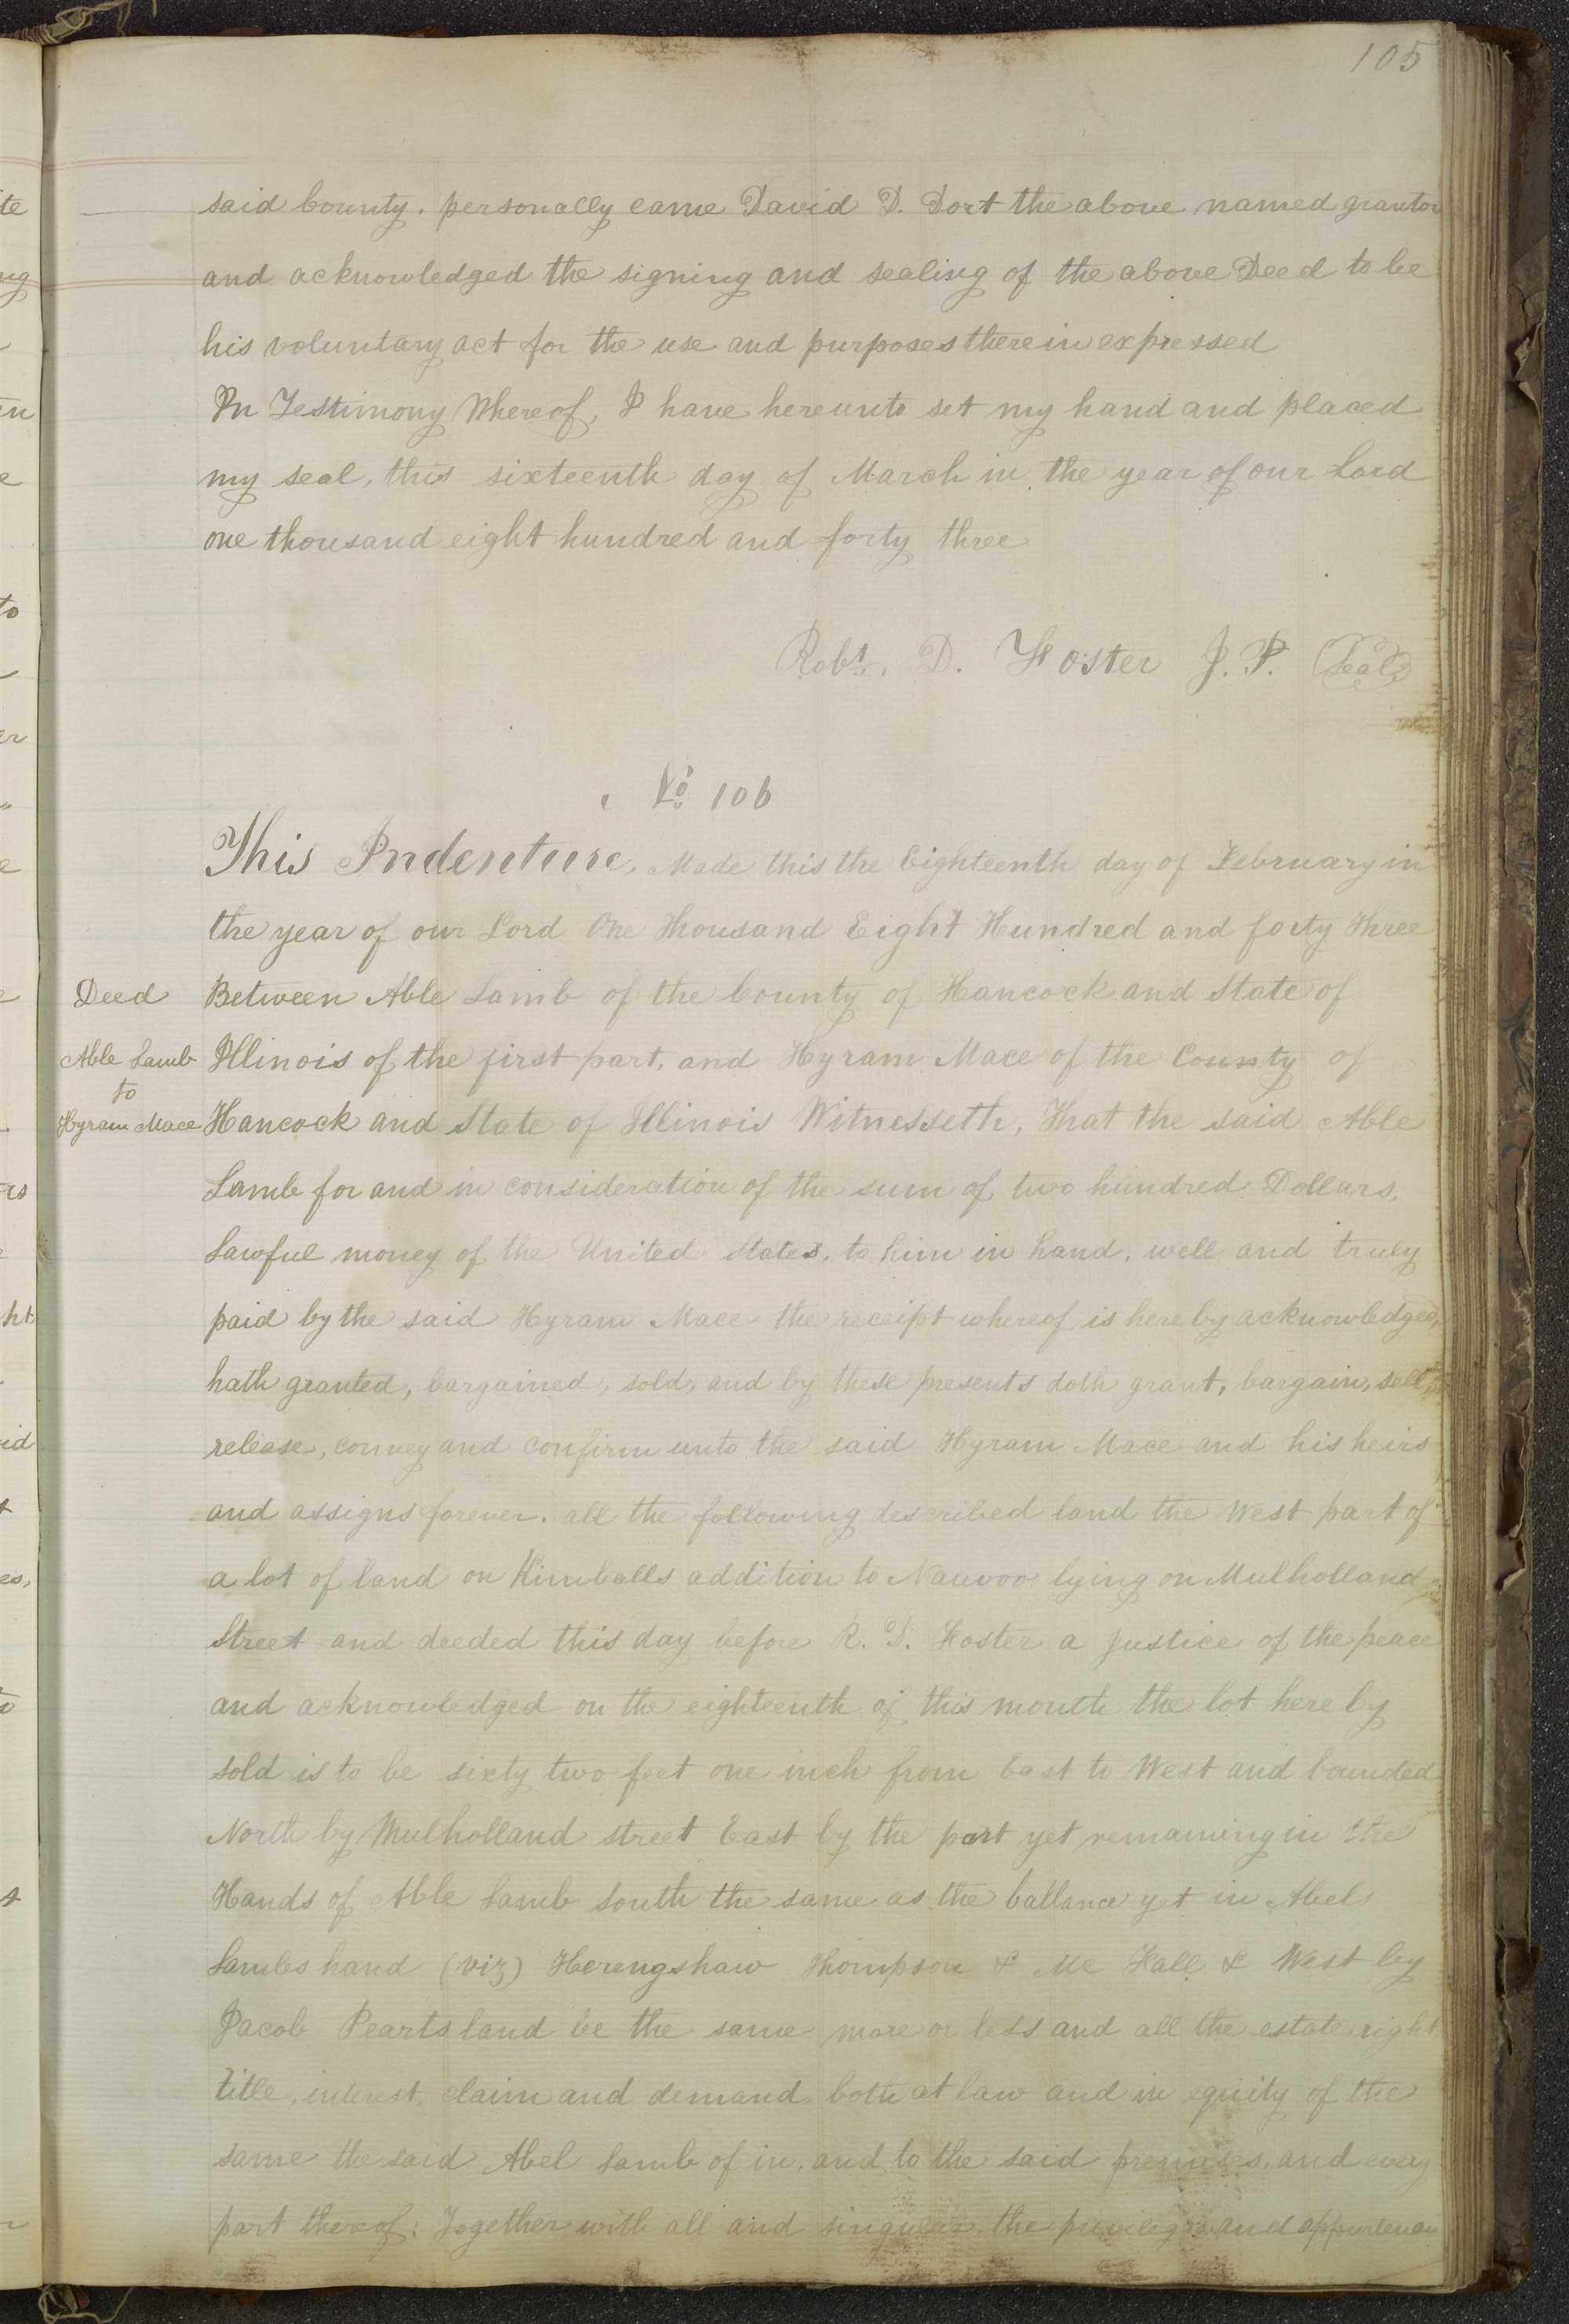 105
said County. personally came David D. Dort the above named grantor
and acknowledged the signing and sealing of the above Deed to be
his voluntary act for the use and purposes therein expressed
In Testimony Whereof, I have hereunto set my hand and placed
my seal, this sixteenth day of March in the year of our Lord
one thousand eight hundred and forty three
Robt. D. Foster J. P. (Seal)
No 106
This Indenture, Made this the Eighteenth day of February in
the year of our Lord One Thousand Eight Hundred and forty Three
Deed
Between Able Lamb of the County of Hancock and State of
Able Lamb
Illinois of the first part, and Hyram Mace of the County of
to
Hyram Mace
Hancock and State of Illinois Witnesseth, That the said Able
Lamb for and in consideration of the sum of two hundred Dollars,
Lawful money of the United States, to him in hand, well and truly
paid by the said Hyram Mace the receipt whereof is hereby acknowledged,
hath granted, bargained, sold, and by these presents doth grant, bargain, sell,
release, convey and confirm unto the said Hyram Mace and his heirs
and assigns forever. all the following described land the West part of
a lot of land on Kimballs addition to Nauvoo lying on Mulholland
Street and deeded this day before R. D. Foster a Justice of the peace
and acknowledged on the eighteenth of this month the lot here by
sold is to be sixty two feet one inch from East to West and bounded
North by Mulholland street East by the part yet remaining in the
Hands of Able Lamb South the same as the ballance yet in Abel
Lambs hand (viz) Herengshaw Thompson & Mc Fall & West by
Jacob Pearts land be the same more or less and all the estate right
title, interest, claim and demand, both at law and in equity of the
same the said Abel Lamb of in, and to the said premises, and every
part thereof: Together with all and singular, the privileges and appurtenan